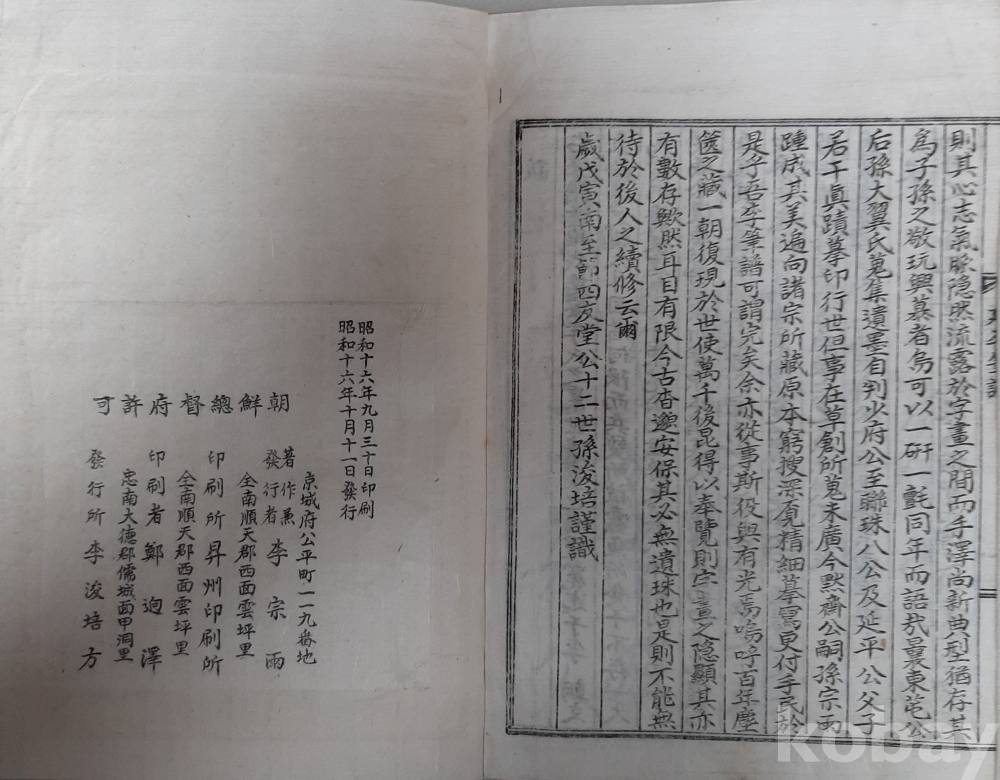 則其心志氣脈隱然流露於字畫之間而手澤尙新典型猶存其
爲子孫之敬玩興慕者烏可以一硏一氈同年而語哉曩東芚公
后孫大翼氏蒐集遺墨自判少府公至聯珠八公及延平公父子
若干眞蹟摹印行世但事在草創所蒐未廣今默齋公嗣孫宗雨
踵成其美遍向諸宗所藏原本窮搜深覓精細摹寫更付手民於
是乎吾宗筆譜可謂完矣余亦從事斯役與有光焉嗚呼百年塵
篋之藏一朝復現於世使萬千後昆得以奉覽則字畫之隱顯其亦
有數存歟然耳目有限今古杳邈安保其必無遺珠也是則不能無
待於後人之續修云爾
歲戊寅南至節四友堂公十二世孫浚培謹識
昭和十六年九月三十日印刷
昭和十六年十月十一日發行
朝鮮總督府許可
京城府公平町一一九番地
著作兼發行者 李宗雨
全南順天郡西面雲坪里
印刷所 昇州印刷所
全南順天郡西面雲坪里
印刷者 鄭逈澤
忠南大德郡儒城面甲洞里
發行所 李浚培方
kobay